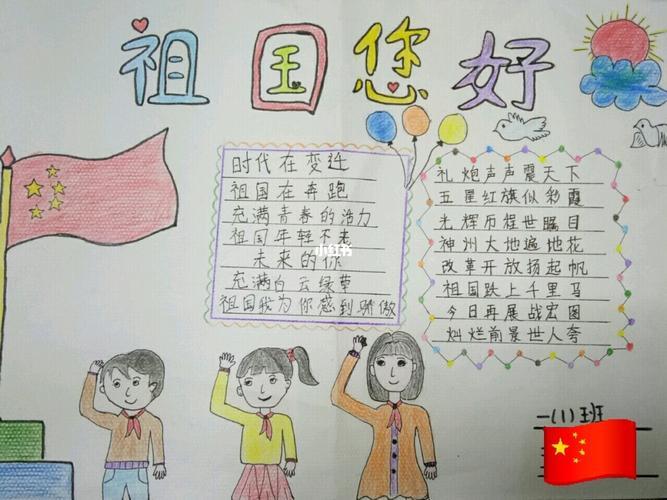 祖国您好
时代在变迁
祖国在奔跑
充满青春的活力
祖国年轻不老
未来的你
充满白云绿草
祖国我为你感到骄傲
小红书
礼炮声声震天下
五星红旗似彩霞
光辉历程世瞩目
神州大地遍地花
改革开放扬起帆
祖国跃上千里马
今日再展战宏图
灿烂前景世人夸
一(1)班